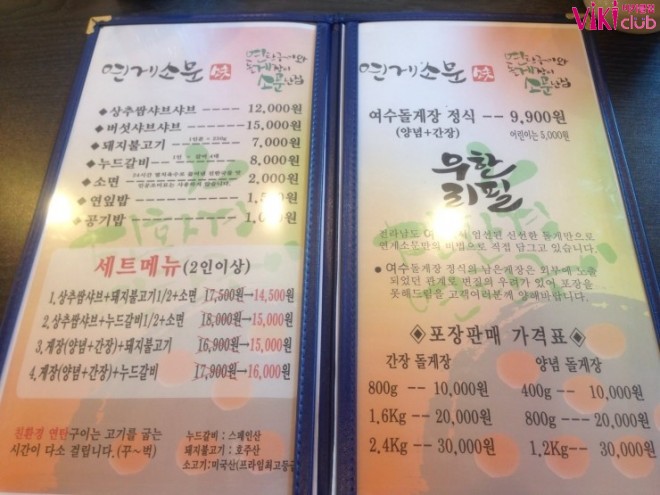 ViKi club
연게소문
상추쌈샤브샤브 ---- 12,000원
버섯샤브샤브 ---- 15,000원
돼지불고기 7,000원
누드갈비 8,000원
소면 2,000원
연잎밥
공기밥
세트메뉴(2인이상)
1. 상추쌈샤브+돼지불고기1/2+소면 17,500원→14,500원
2. 상추쌈샤브+누드갈비1/2+소면 18,000원→15,000원
3. 게장(양념+간장)+돼지불고기 16,900원→15,000원
4. 게장(양념+간장)+누드갈비 17,900원→16,000원
친환경 연탄구이는 고기를 굽는
시간이 다소 걸립니다.(꾸~벅)
누드갈비 : 스페인산
돼지불고기 : 호주산
소고기:미국산(프라임최고등급
연게소문
여수돌게장 정식 -- 9,900원
(양념+간장) 어린이는 5,000원
무한
리필
전라남도 엄선된 신선한 돌게만으로
연게소문만의 비법으로 직접 담그고 있습니다.
● 여수돌게장 정식의 남은게장은 외부에 노출
되었던 관계로 변질의 우려가 있어 포장을
못해드림을 고객여러분께 양해바랍니다.
◈ 포장판매 가격표 ◈
간장 돌게장 양념 돌게장
800g -- 10,000원 400g -- 10,000원
1.6Kg -- 20,000원 800g --- 20,000원
2.4Kg -- 30,000원 1.2Kg -- 30,000원